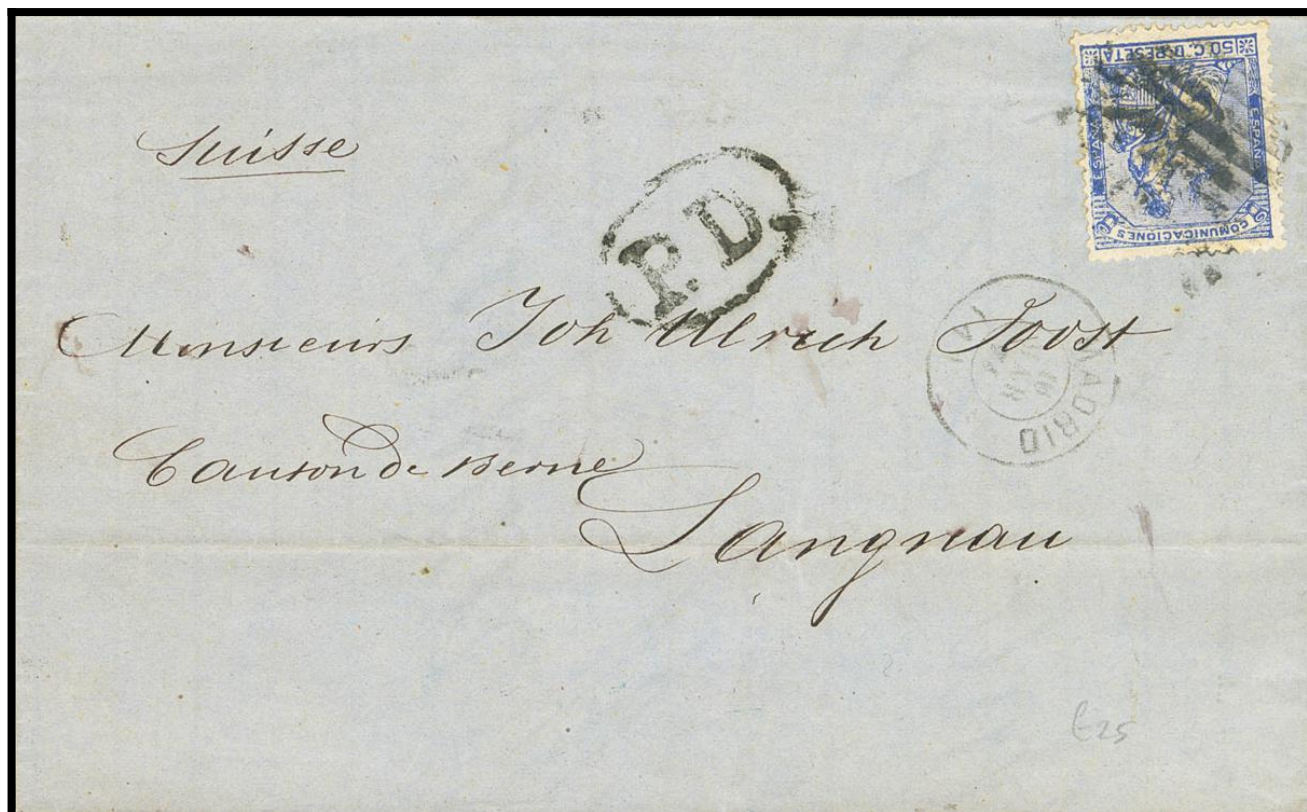 Suisse
P. D.
50 C. D. PESETA
ESPAÑA
ESPAÑA
COMUNICACIONES
Monsieurs Joh Ulrich Joost
MADRID
Canton de Berne
Langnau
£25